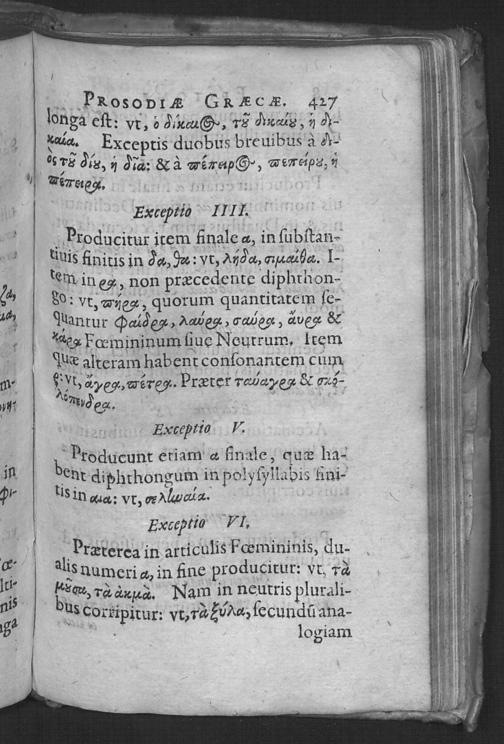 PROSODIÆ GRÆCÆ. 427
longa est: vt, ὁ δίκαιος, τοῦ δικαίου, ἡ δι-
καία. Exceptis duobus breuibus à δι-
ὸς τοῦ δίου, ἡ δῖα: & à πέπειρος, πεπείρου, ἡ
πέπειρα.
Exceptio IIII.
Producitur item finale α, in substan-
tiuis finitis in δα, θα: vt, λήδα, σιμαίθα. I-
tem in ρα, non præcedente diphthon-
go: vt, πήρα, quorum quantitatem se-
quantur φαίδρα, λαύρα, σαύρα, ἄυρα &
κάρα Fœmininum siue Neutrum. Item
quæ alteram habent consonantem cum
ρ: vt, ἄγρα, πέτρα. Præter ταύαγρα & σκο-
λόπενδρα.
Exceptio V.
Producunt etiam α finale, quæ ha-
bent diphthongum in polysyllabis fini-
tis in αια: vt, σεληναία.
Exceptio VI.
Præterea in articulis Fœmininis, du-
alis numeri α, in fine producitur: vt, τὰ
μούσα, τὰ ἀκμὰ. Nam in neutris plurali-
bus corripitur: vt, τὰ ξύλα, secundū ana-
logiam